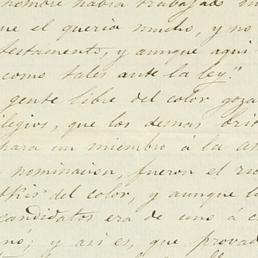 hombre había trabajado m
ue el queria mucho, y no
testamento, y aunque aqui
como tales ante la ley."
gente libre del color goza
ilegios, que los demas
hará un miembro á la
nominacion, fueron el
del color, y aunque l
candidatos era de uno á c
nó; y asi es, que provad